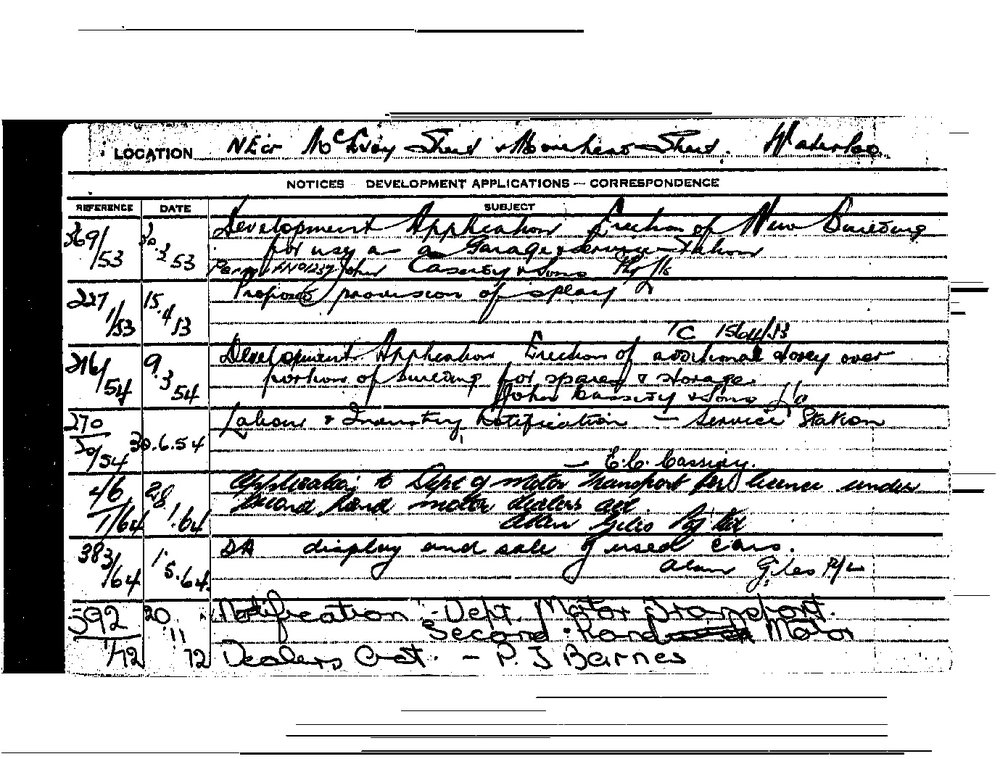 LOCATION NEcr McEvoy Street & Morehead Street. Waterloo
NOTICES DEVELOPMENT APPLICATIONS — CORRESPONDENCE
REFERENCE DATE SUBJECT
369/53 30.3.53 Development Application Erection of New Building
for use as a Garage & Service Station
John Cassidy & Sons Pty Ltd
227/53 15.4.53 Proposed provision of splay
TC 15/4/53
216/54 9.3.54 Development Application Erection of additional storey over
portion of building for spares & storage
John Cassidy & Sons
270 30.6.54 Labour & Industry Notification — Service Station
/54
— E.C. Cassidy.
46/64 28.1.64 Application to Dept of Motor Transport for licence under
second hand motor dealers act
Alan Giles Pty Ltd
383/64 1.5.64 DA display and sale of used cars.
Alan Giles P/L
592 20 Notification - Dept. Motor Transport.
11 Second-Hand Motor
/72 72 Dealers Act. - P. J Barnes